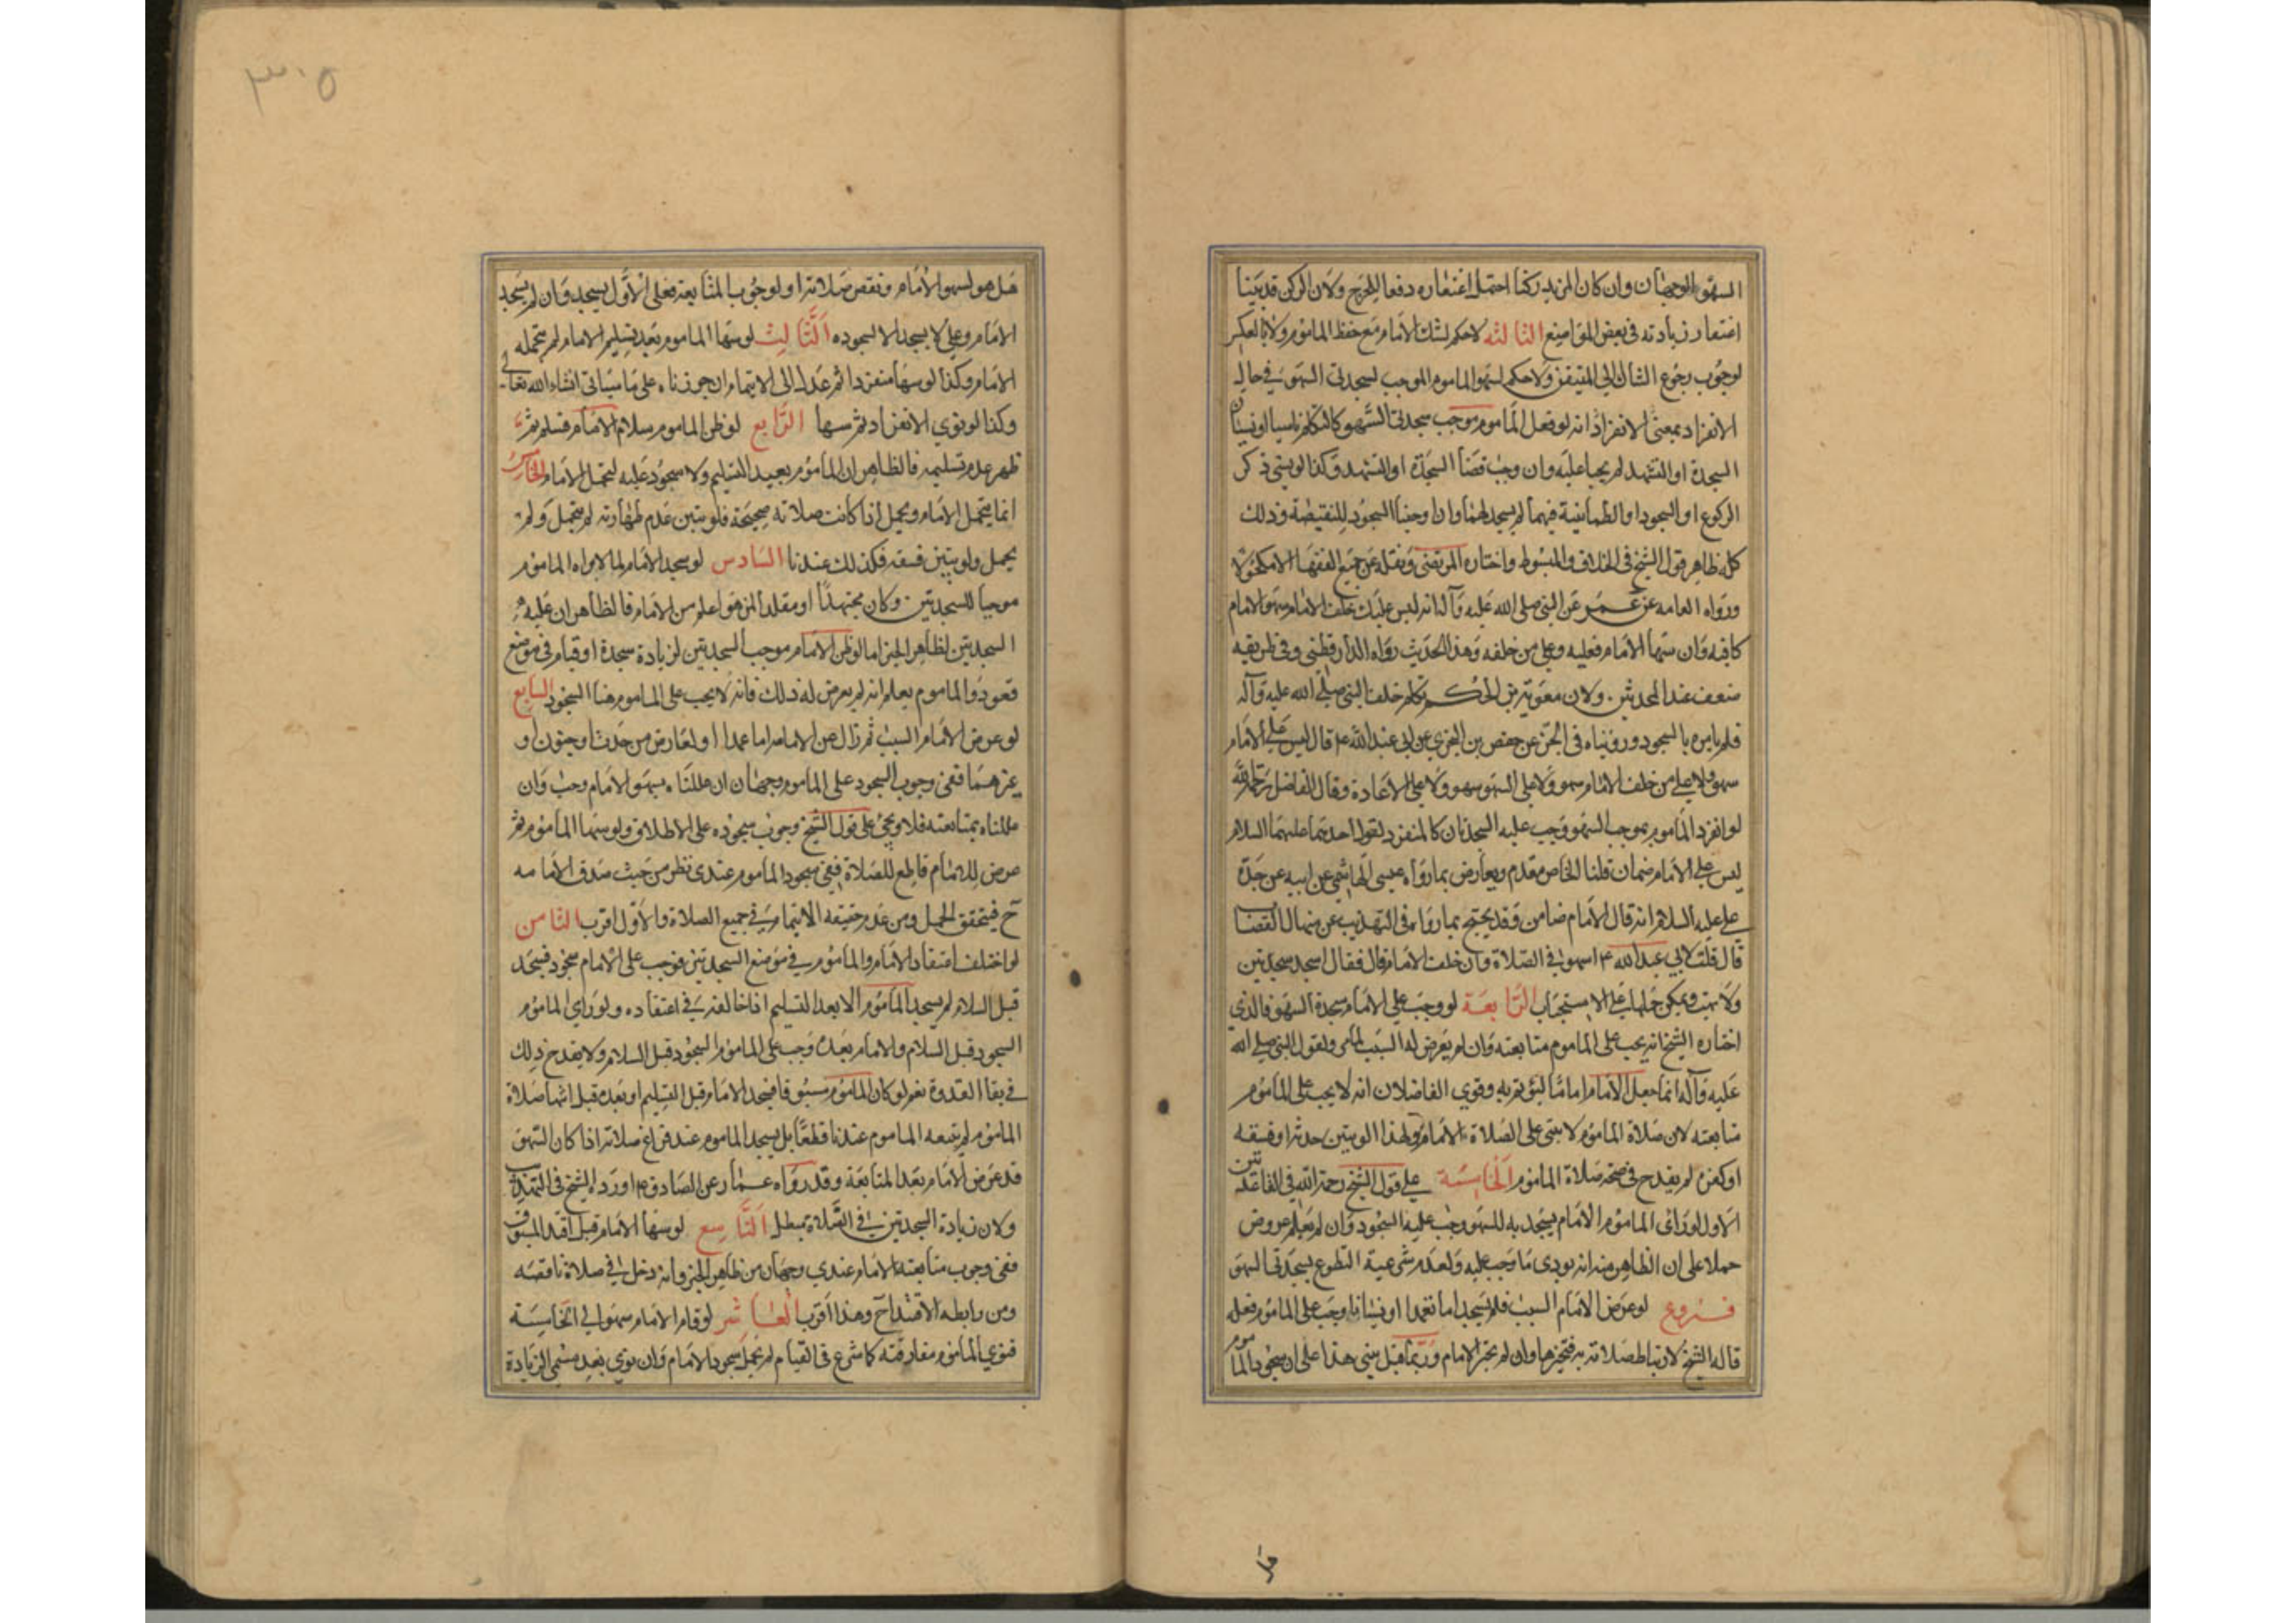 السهو الوجهان وان كان المزيد ركنا احتمل اغتفاره دفعا للحرج ولان الركن قد بينا
اغتفار زيادته في بعض المواضع الثالثه لاحكم لشك الامام مع حفظ الماموم ولا بالعكس
لوجوب رجوع الشاك الى المتيقن ولاحكم لسهو الماموم الموجب لسجدتي السهو في حال
الانفراد بمعنى الانفراد انه لو فعل الماموم موجب سجدتي السهو كالتكلم ناسيا او نسيان
السجدة او التشهد لم يجبا عليه وان وجب قضا السجدة او التشهد وكذا لو نسي ذكر
الركوع او السجود او الطمأنينة فيهما لم يسجد لهما وان اوجبنا السجود للنقيصة وذلك
كله ظاهر قول الشيخ في الخلاف والمبسوط واختاره المرتضى ونقله عن جميع الفقها الا مكحولا
ورواه العامه عن عمر عن النبي صلى الله عليه وآله انه ليس عليك خلف الامام سهو الامام
كافيه وان سها الامام فعليه وعلى من خلفه وهذا الحديث رواه الدارقطني وفي طريقه
ضعف عند المحدثين ولان معوية بن الحكم تكلم خلف النبي صلى الله عليه وآله
فلم يامره بالسجود وروينا في الحسن عن حفص بن البختري عن ابي عبد الله ع قال ليس على الامام
سهو ولا على من خلف الامام سهو ولا على السهو سهو ولا على الاعادة وقال الفاضل رحمه الله
لو انفرد الماموم بموجب السهو وجب عليه السجدتان كالمنفرد لقول احدهما عليهما السلام
ليس على الامام ضمان قلنا الخاص مقدم ويعارض بما رواه عيسى الهاشمي عن ابيه عن جده
علي عليه السلام انه قال الامام ضامن وقد يحتج بما رواه في التهذيب عن منهال القصاب
قال قلت لابي عبد الله ع اسهو في الصلاة وان خلف الامام قال فقال اسجد سجدتين
ولا تهب ويمكن حملها على الاستحباب الرابعة لو وجب على الامام سجدة السهو فالذي
اختاره الشيخ انه يجب على الماموم متابعته وان لم يعرض له السبب لما مر ولقول النبي صلى الله
عليه وآله انما جعل الامام اماما ليؤتم به وقوي الفاضلان انه لا يجب على الماموم
متابعته لان صلاة الماموم لا تبتنى على الصلاة الامام ولهذا لو تبين حدثه او فسقه
او كفره لم يقدح في صحة صلاة الماموم الخامسة على قول الشيخ رحمة الله في القاعدتين
الاول لو رائ الماموم الامام يسجد به للسهو وجب عليه السجود وان لم يعلم عروض
حملا على ان الظاهر منه انه يودى ما وجب عليه ولعدم شرعية التطوع بسجدتي السهو
فروع لو عرض الامام السبب فلم يسجد اما تعمدا او نسيانا وجب على الماموم فعله
قاله الشيخ لارتباط صلاته به فتجيزها وان لم يجز الامام وربما قيل يبني هذا على ان سجود الماموم
هل هو لسهو الامام ونقص صلاته او لوجوب المتابعه فعلى الاول يسجد وان لم يسجد
الامام وعلى لا يسجد الا لسجوده الثالث لو سها الماموم بعد تسليم الامام لم يتحمله
الامام وكذا لو سها منفردا ثم عدل الى الايتمام ان جوزناه على ما سياتي انشاء الله تعالى
وكذا لو نوي الانفراد ثم سها الرابع لو ظن الماموم سلام الامام فسلم ثم
ظهر عدم تسليمه فالظاهر ان الماموم يعيد التسليم ولا سجود عليه لتحمل الامام الخامس
انما يتحمل الامام ويحمل اذا كانت صلاته صحيحة فلو تبين عدم طهارته لم يتحمل ولم
يحمل ولو تبين فسقه فكذلك عندنا السادس لو سجد الامام لما لا يراه الماموم
موجبا للسجدتين وكان مجتهدا او مقلدا لمن هو اعلم من الامام فالظاهر ان عليه
السجدتين لظاهر الخبر اما لو ظن الامام موجب السجدتين لزيادة سجدة او قيام في موضع
قعود والماموم يعلم انه لم يعرض له ذلك فانه لا يجب على الماموم هنا السجود السابع
لو عرض الامام السبب ثم زال عن الامامه اما عمدا او لعارض من حدث او جنون او
غيرهما ففي وجوب السجود على الماموم وجهان ان عللناه بسهو الامام وجب وان
عللناه بمتابعته فلا ويجئ على قول الشيخ وجوب سجوده على الاطلاق ولو سها الماموم ثم
عرض للامام قاطع للصلاة ففي سجود الماموم عندى نظر من حيث صدق الامامه
ح فيتحقق الحمل ومن عدم حقيقه الايتمام في جميع الصلاة والاول اقرب الثامن
لو اختلف اعتقاد الامام والماموم في موضع السجدتين فوجب على الامام سجود فسجد
قبل السلام لم يسجد الماموم الا بعد التسليم اذا خالفه في اعتقاده ولو راي الماموم
السجود قبل السلام والامام بعده وجب على الماموم السجود قبل السلام ولا يقدح ذلك
في بقا القدوة نعم لو كان الماموم مسبوقا فسجد الامام قبل التسليم او بعده قبل انتها صلاة
الماموم لم يتبعه الماموم عندنا قطعا بل يسجد الماموم عند فراغ صلاته اذا كان السهو
قد عرض الامام بعد المتابعة وقد رواه عمار عن الصادق ع اورده الشيخ في التهذيب
ولان زيادة السجدتين في الصلاة تبطل التاسع لو سها الامام قبل اقتدا المسبوق
ففي وجوب متابعته الامام عندي وجهان من ظاهر الخبر وانه دخل في صلاة ناقصه
ومن رابطه الاقتداح وهذا اقرب العاشر لو قام الامام سهوا الى الخامسة
فنوي الماموم مفارقته كما شرع في القيام لم يحمل سجود الامام وان نوي بعد مسمى الزيادة
٣٠٥